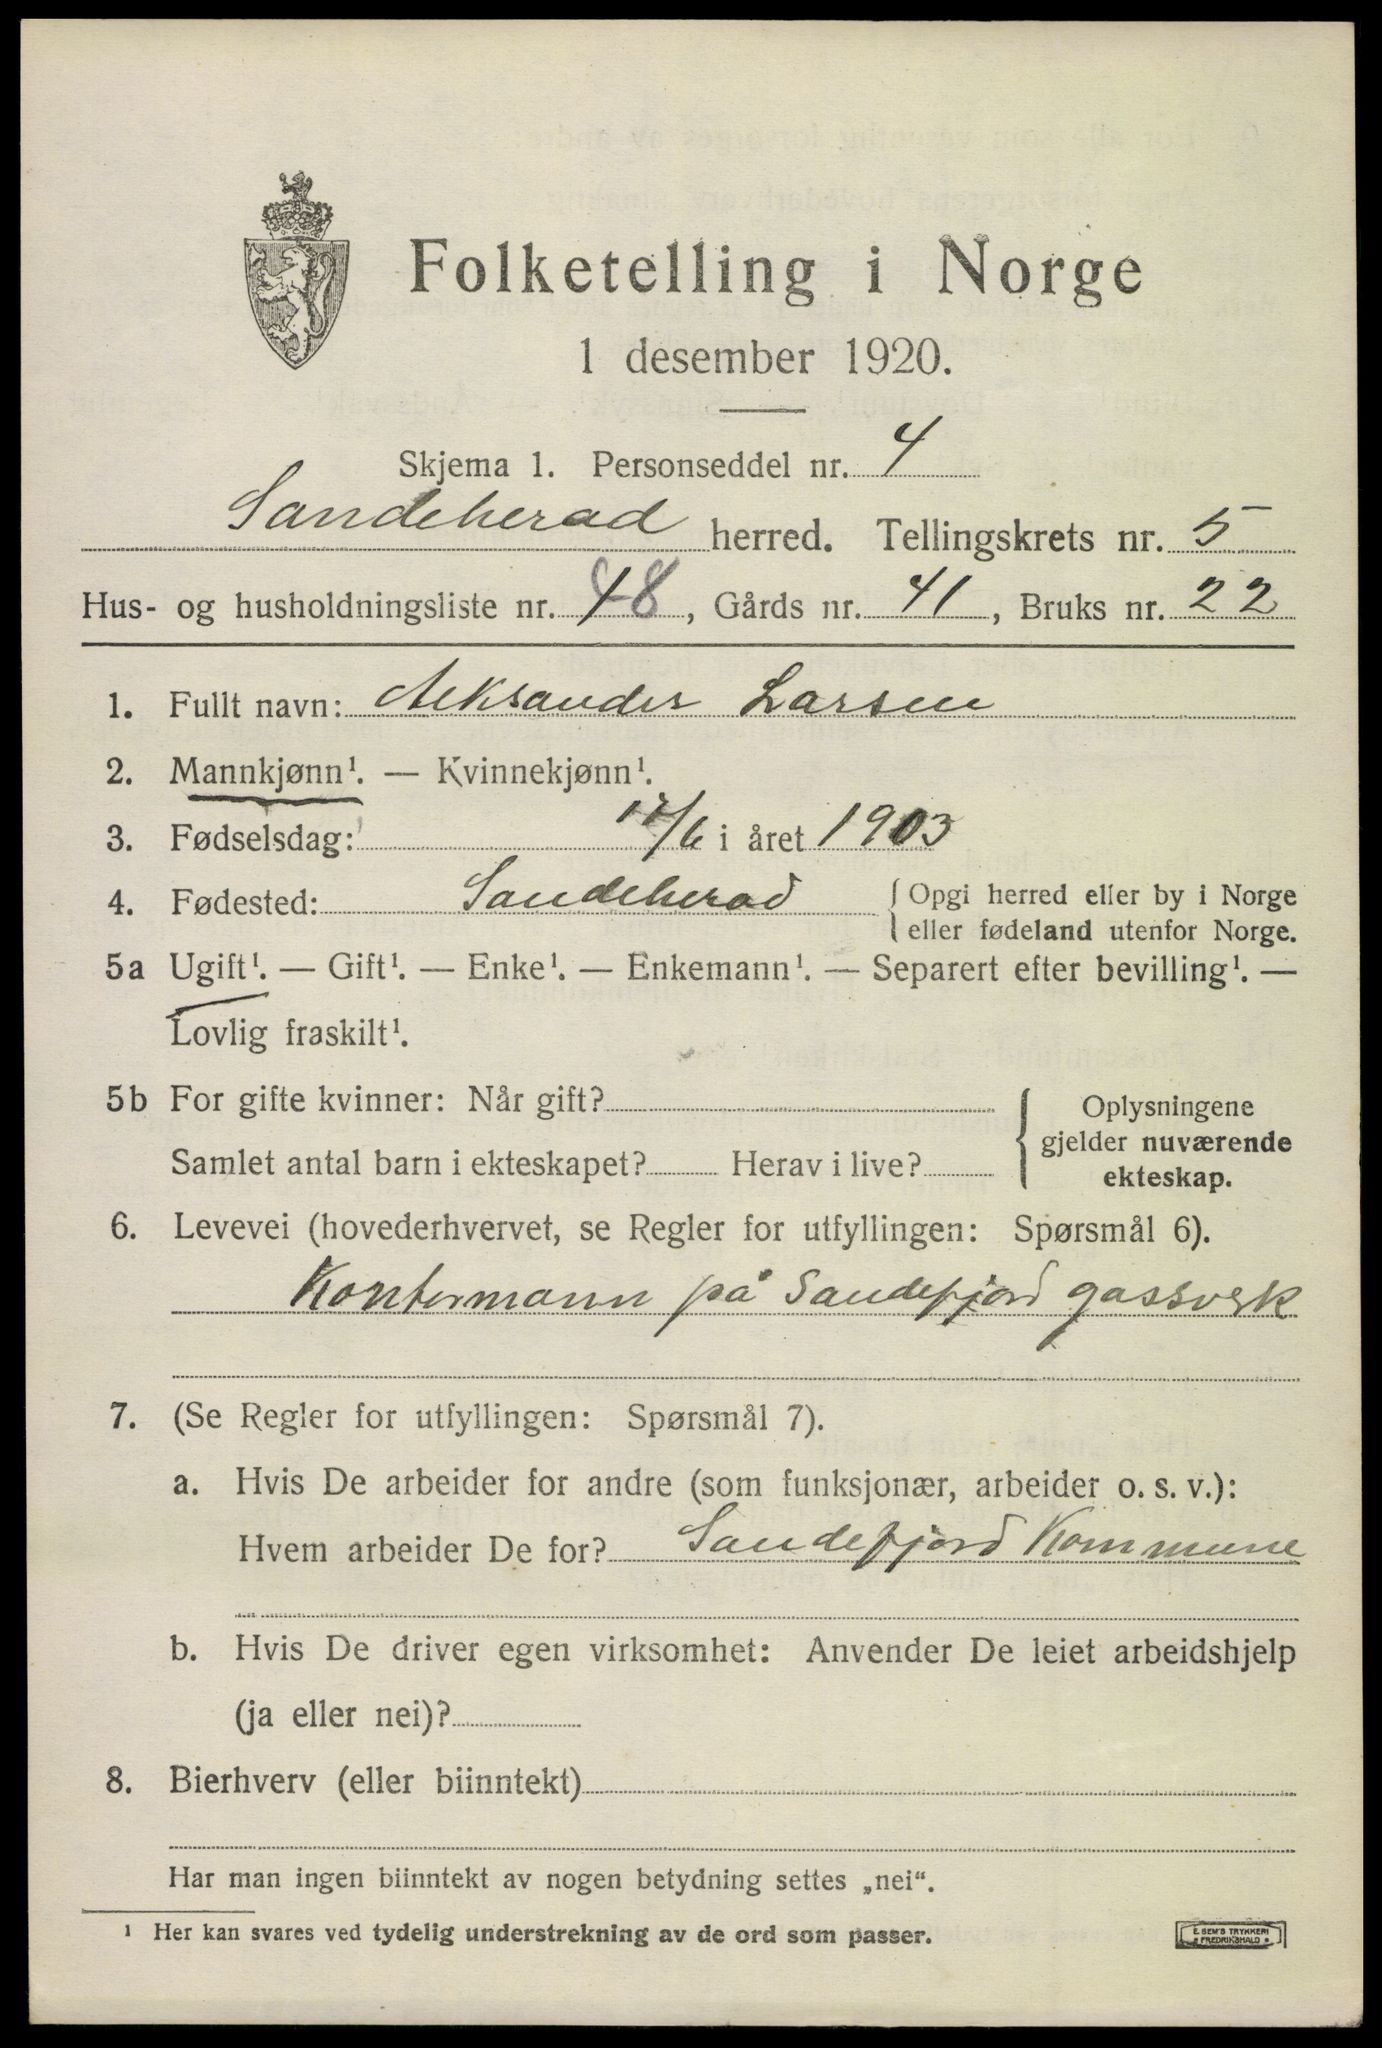 Folketelling i Norge
1 desember 1920.
Skjema 1. Personseddel nr. 4
Sandeherad herred. Tellingskrets nr. 5
Hus- og husholdningsliste nr. 48, Gårds nr. 41, Bruks nr. 22
1. Fullt navn: Aleksander Larsen
2. Mannkjønn¹. — Kvinnekjønn¹.
3. Fødselsdag: 17/6 i året 1903
4. Fødested: Sandeherad { Opgi herred eller by i Norge
eller fødeland utenfor Norge.
5a Ugift¹. — Gift¹. — Enke¹. — Enkemann¹. — Separert efter bevilling¹. —
Lovlig fraskilt¹.
5b For gifte kvinner: Når gift?
Samlet antal barn i ekteskapet? Herav i live?
{ Oplysningene
gjelder nuværende
ekteskap.
6. Levevei (hovederhvervet, se Regler for utfyllingen: Spørsmål 6).
Kontormann på Sandefjord gassverk
7. (Se Regler for utfyllingen: Spørsmål 7).
a. Hvis De arbeider for andre (som funksjonær, arbeider o. s. v.):
Hvem arbeider De for? Sandefjord Kommune
b. Hvis De driver egen virksomhet: Anvender De leiet arbeidshjelp
(ja eller nei)?
8. Bierhverv (eller biinntekt)
Har man ingen biinntekt av nogen betydning settes „nei“.
¹ Her kan svares ved tydelig understrekning av de ord som passer.
E. SEM'S TRYKKERI
FREDRIKSHALD